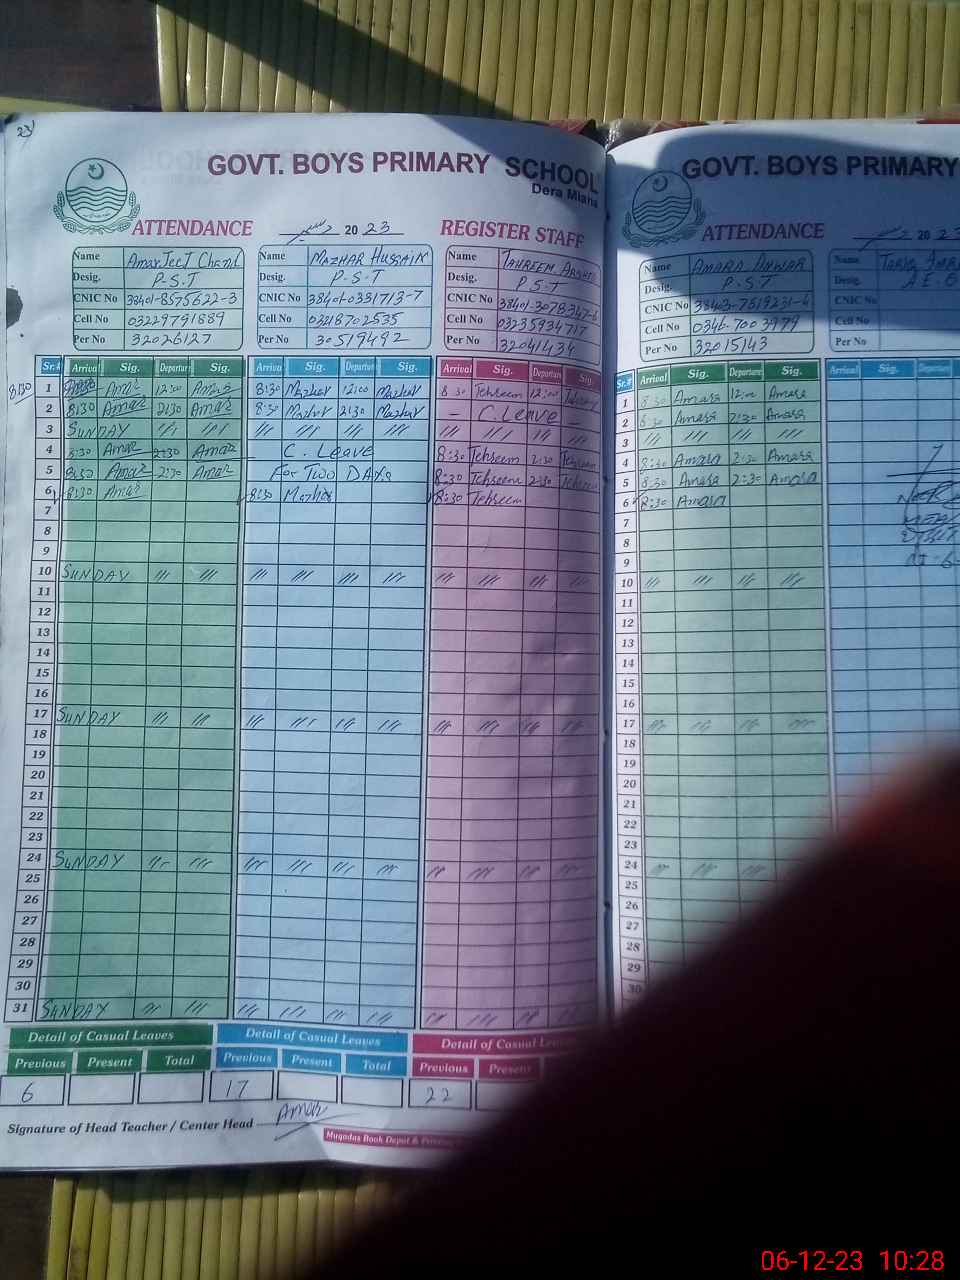 23
GOVT. BOYS PRIMARY SCHOOL
Dera Miana
ATTENDANCE 2023 REGISTER STAFF
Name AmarJeeT Chand
Desig. P-S-T
CNIC No 38401-8575622-3
Cell No 03229791889
Per No 32026127
Name MAZHAR HUSSAIN
Desig. P-S-T
CNIC No 38401-0331713-7
Cell No 03218702535
Per No 30519492
Name TAHREEM ARSHED
Desig. P S T
CNIC No 38401-3078347-6
Cell No 03235934717
Per No 32041434
Sr.# Arrival Sig. Departure Sig. Arrival Sig. Departure Sig. Arrival Sig. Departure Sig.
8:30 1 Amar 12:00 Amar 8:30 Mazhar 12:00 Mazhar 8 30 Tehseem 12:00
2 8:30 Amar 2:30 Amar 8:30 Mazhar 2:30 Mazhar - C. Leave -
3 SUNDAY /// /// /// /// /// /// /// /// ///
4 8:30 Amar 2:30 Amar C. Leave 8:30 Tehseem 2:30 Tehseem
5 8:30 Amar 2:30 Amar For Two DAYs 8:30 Tehseem 2:30 Tehseem
6 8:30 Amar 8:30 Mazhar 8:30 Tehseem
7
8
9
10 SUNDAY /// /// /// /// /// /// /// /// /// ///
11
12
13
14
15
16
17 SUNDAY /// /// /// /// /// /// /// /// /// ///
18
19
20
21
22
23
24 SUNDAY /// /// /// /// /// /// /// /// /// ///
25
26
27
28
29
30
31 SUNDAY /// /// /// /// /// /// /// /// /// ///
Detail of Casual Leaves Detail of Casual Leaves Detail of Casual Leaves
Previous Present Total Previous Present Total Previous Present
6 17 22
Signature of Head Teacher / Center Head Amar
Muqadas Book Depot &
GOVT. BOYS PRIMARY
ATTENDANCE 2023
Name AMARA ANWAR
Desig. P-S-T
CNIC No 38403-7519231-4
Cell No 0346-7003979
Per No 32015143
Name TARIQ
Desig. A.E.O
CNIC No
Cell No
Per No
Sr.# Arrival Sig. Departure Sig. Arrival Sig. Departure
1 8:30 Amara 12:00 Amara
2 8:30 Amara 2:30 Amara
3 /// /// /// ///
4 8:30 Amara 2:30 Amara
5 8:30 Amara 2:30 Amara
6 8:30 Amara
7
8
9
10 /// /// /// ///
11
12
13
14
15
16
17 /// /// /// ///
18
19
20
21
22
23
24 /// /// /// ///
25
26
27
28
29
30
06-12-23 10:28